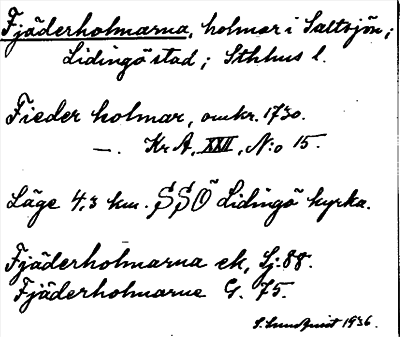 Fjäderholmarna, holmar i Saltsjön;
Lidingö stad; Sthhus l.
Fieder holmar, omkr. 1730.
—. Kr A, XXII, N:o 15.
Läge 4,3 km. SSÖ Lidingö kyrka.
Fjäderholmarna ek, Sj: 88.
Fjäderholmarne G. 75.
S. Lundquist 1936.